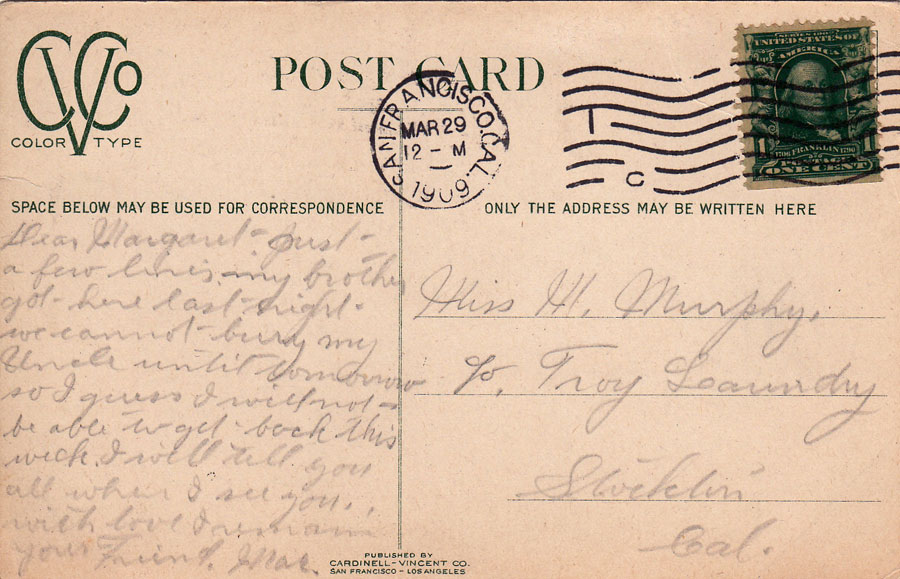 CVCo
COLOR TYPE
POST CARD
SAN FRANCISCO, CAL.
MAR 29
12 - M
1909
1 C
SERIES 1902
UNITED STATES OF
AMERICA
1 1
1706 FRANKLIN 1790
POSTAGE
ONE CENT
SPACE BELOW MAY BE USED FOR CORRESPONDENCE
Dear Margaret- just-
a few lines, my brother
got- here last- night-
we cannot- bury my
Uncle until tomorrow
so I guess I will not-
be able to get- back this
week. I will tell you
all when I see you,
with love I remain
your Friend, Mac.
ONLY THE ADDRESS MAY BE WRITTEN HERE
Miss M. Murphy,
℅. Troy Laundry
Stockton
Cal.
PUBLISHED BY
CARDINELL-VINCENT CO.
SAN FRANCISCO - LOS ANGELES